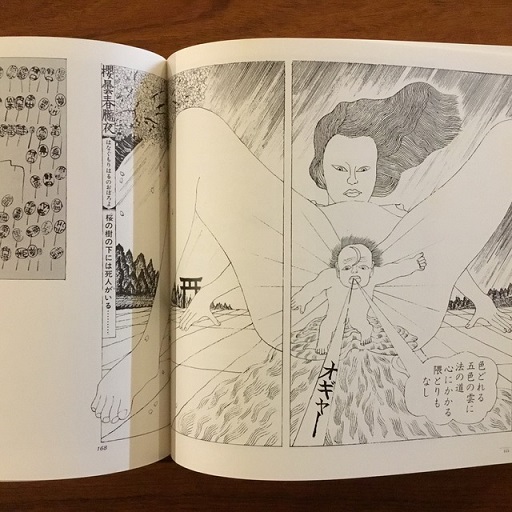 櫻曇春朧夜【はなぐもりはるのおぼろよ】桜の樹の下には死人がいる………
色どれる
五色の雲に
法の道
心にかかる
隈とりも
なし
オギャー
168